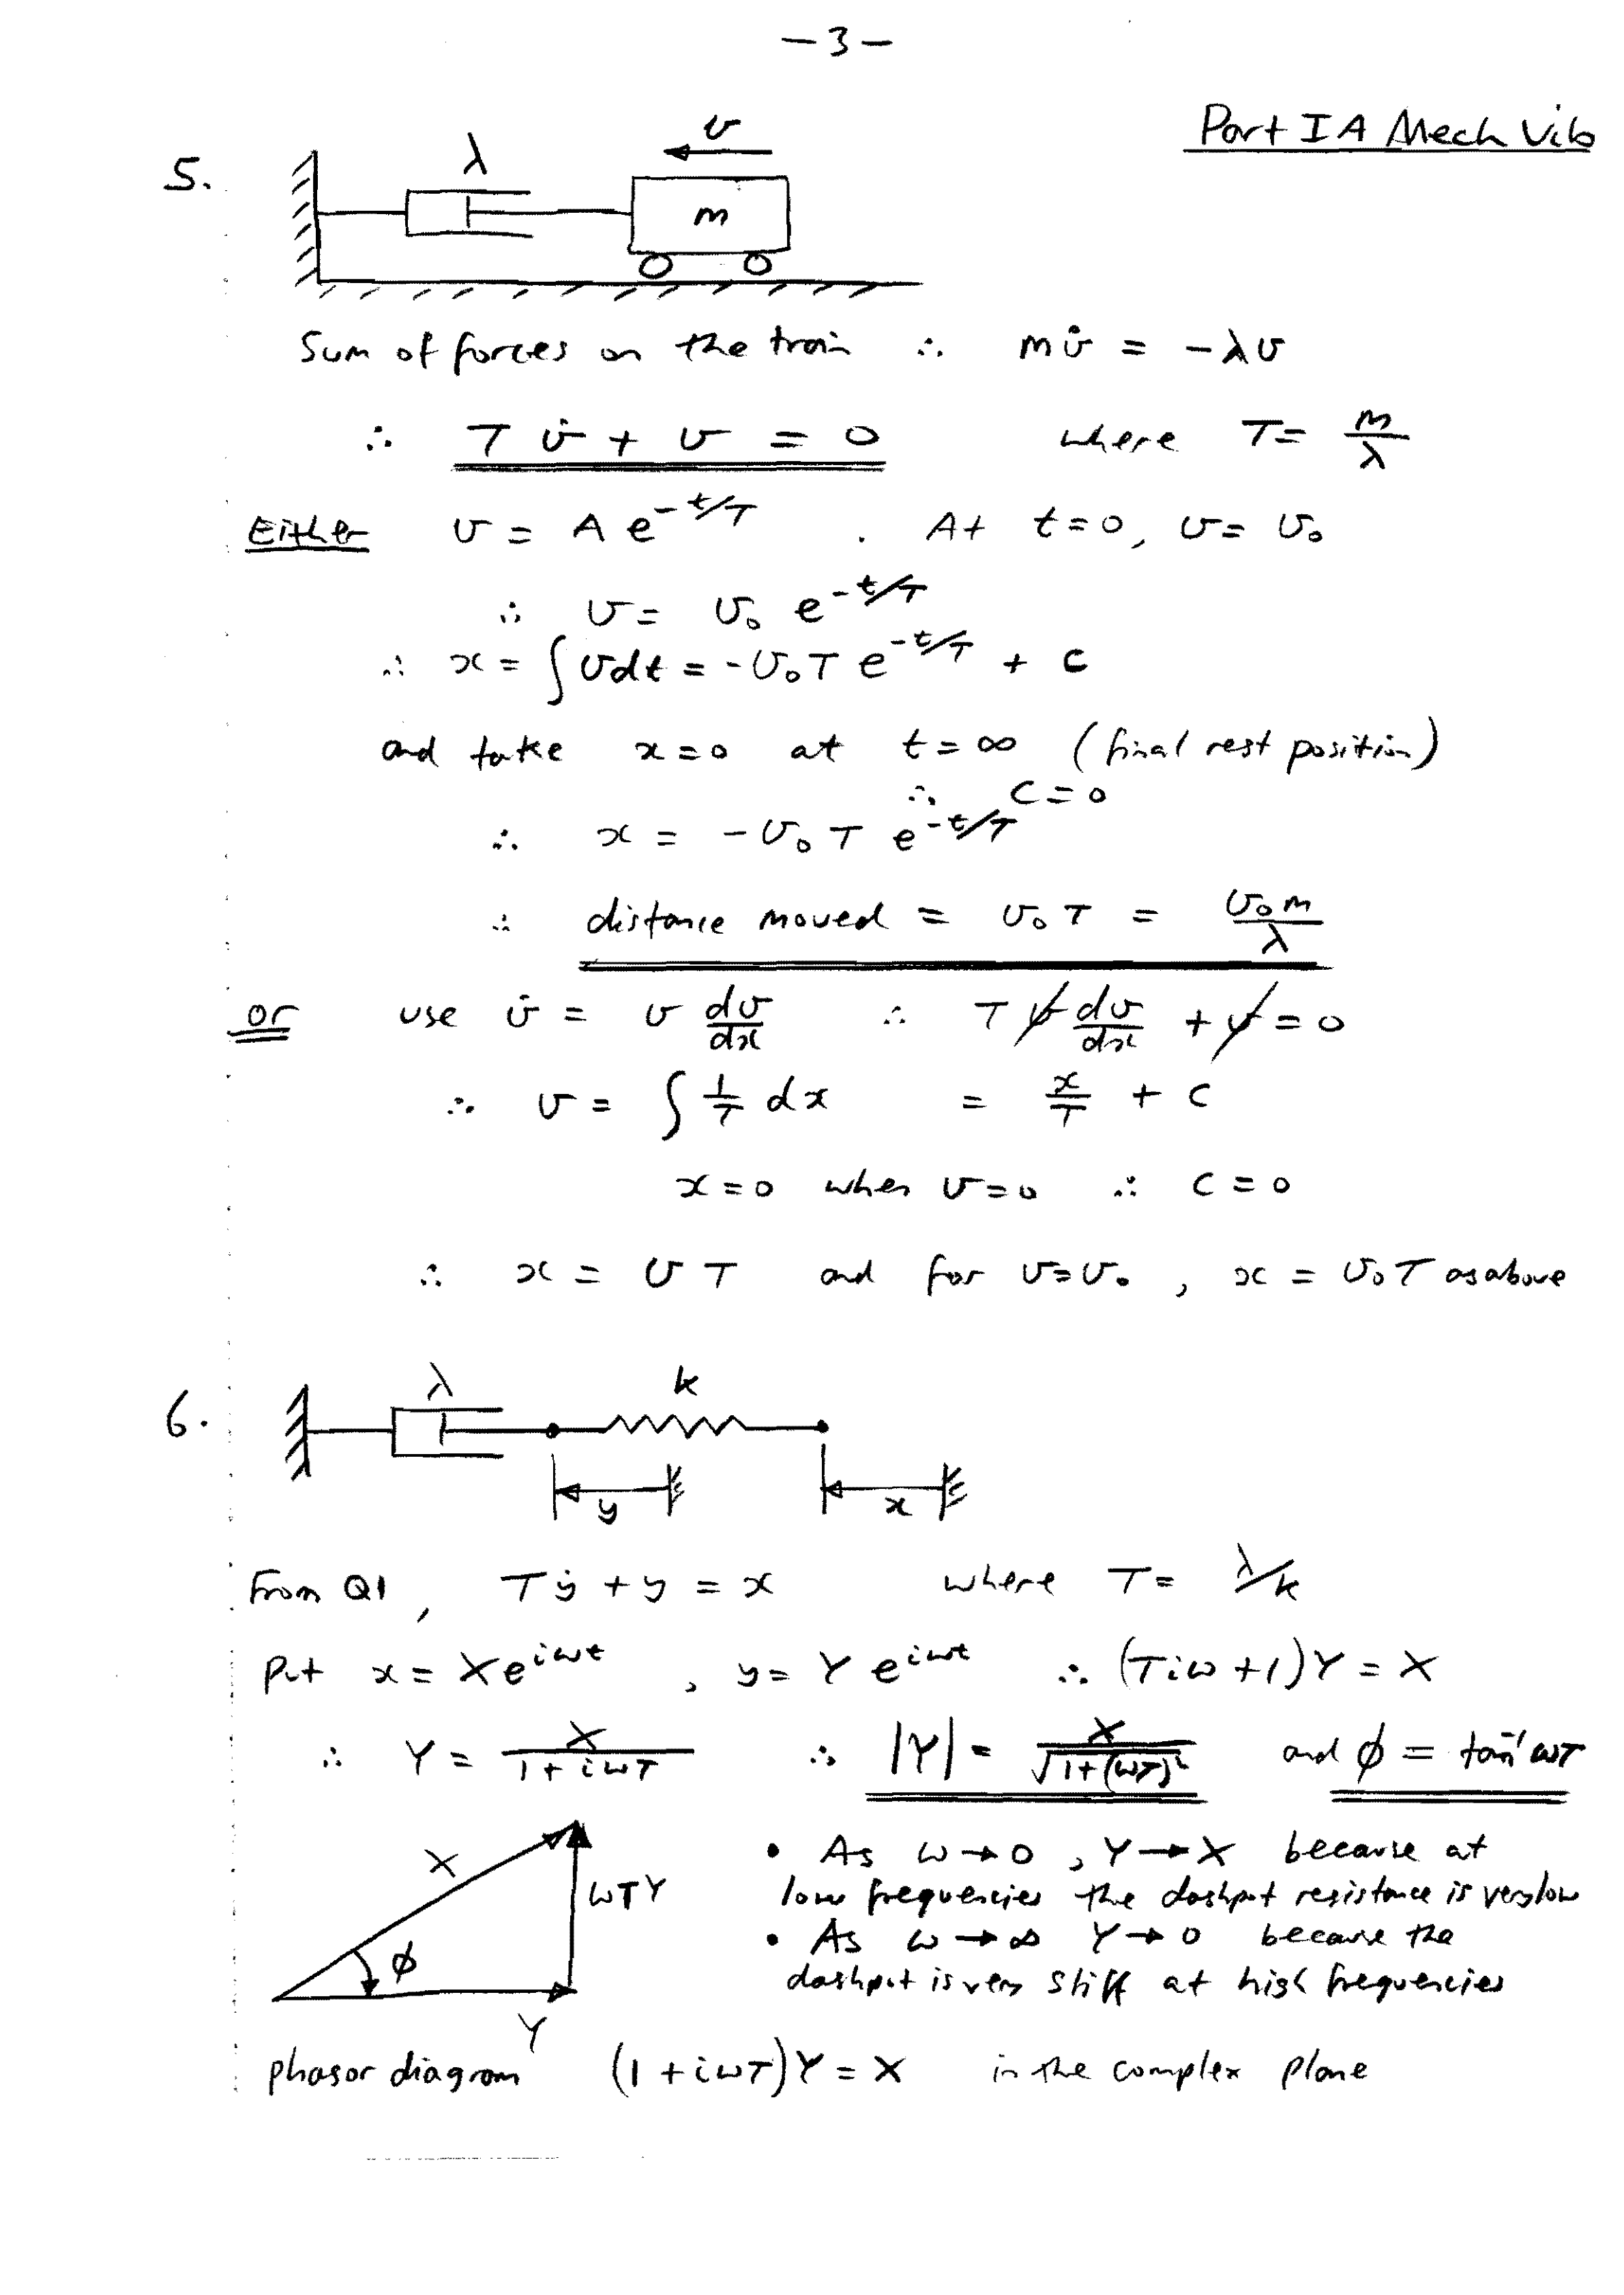 -3-
Part IA Mech Vib
5.
λ
v
m
Sum of forces on the train ∴ m v̇ = -λv
∴ T v̇ + v = 0 where T = m/λ
Either v = A e^{-t/T} . At t=0, v = v₀
∴ v = v₀ e^{-t/T}
∴ x = ∫ v dt = -v₀ T e^{-t/T} + c
and take x=0 at t=∞ (final rest position)
∴ C=0
∴ x = -v₀ T e^{-t/T}
∴ distance moved = v₀ T = v₀ m/λ
or use v̇ = v dv/dx ∴ T v dv/dx + v = 0
∴ v = ∫ 1/T dx = x/T + C
x=0 when v=0 ∴ C = 0
∴ x = v T and for v=v₀ , x = v₀T as above
6.
λ
k
y
x
From Q1, T ẏ + y = x where T = λ/k
Put x = X e^{iωt} , y = Y e^{iωt} ∴ (Tiω + 1)Y = X
∴ Y = X/(1 + iωT) ∴ |Y| = X/√(1+(ωT)²) and φ = tan⁻¹ ωT
X
ωTY
φ
Y
• As ω → 0 , Y → X because at
low frequencies the dashpot resistance is very low
• As ω → ∞ Y → 0 because the
dashpot is very stiff at high frequencies
phasor diagram (1 + iωT)Y = X in the complex plane